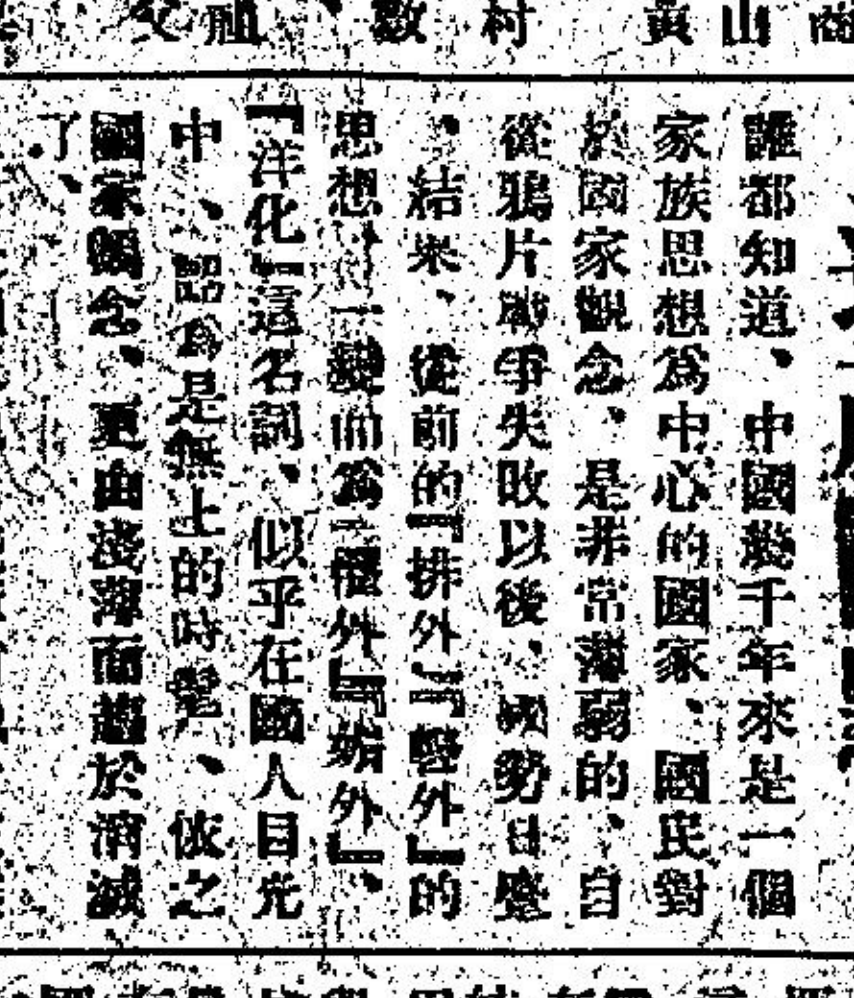 誰都知道、中國幾千年來是一個
家族思想爲中心的國家、國民對
於國家觀念、是非常薄弱的、自
從鴉片戰爭失敗以後、國勢日蹙
、結果、從前的『排外』『輕外』的
思想一變而爲『懼外』『媚外』、
『洋化』這名詞、似乎在國人目光
中、認爲是無上的時髦、依之
國家觀念、更由淺薄而趨於消滅
了、